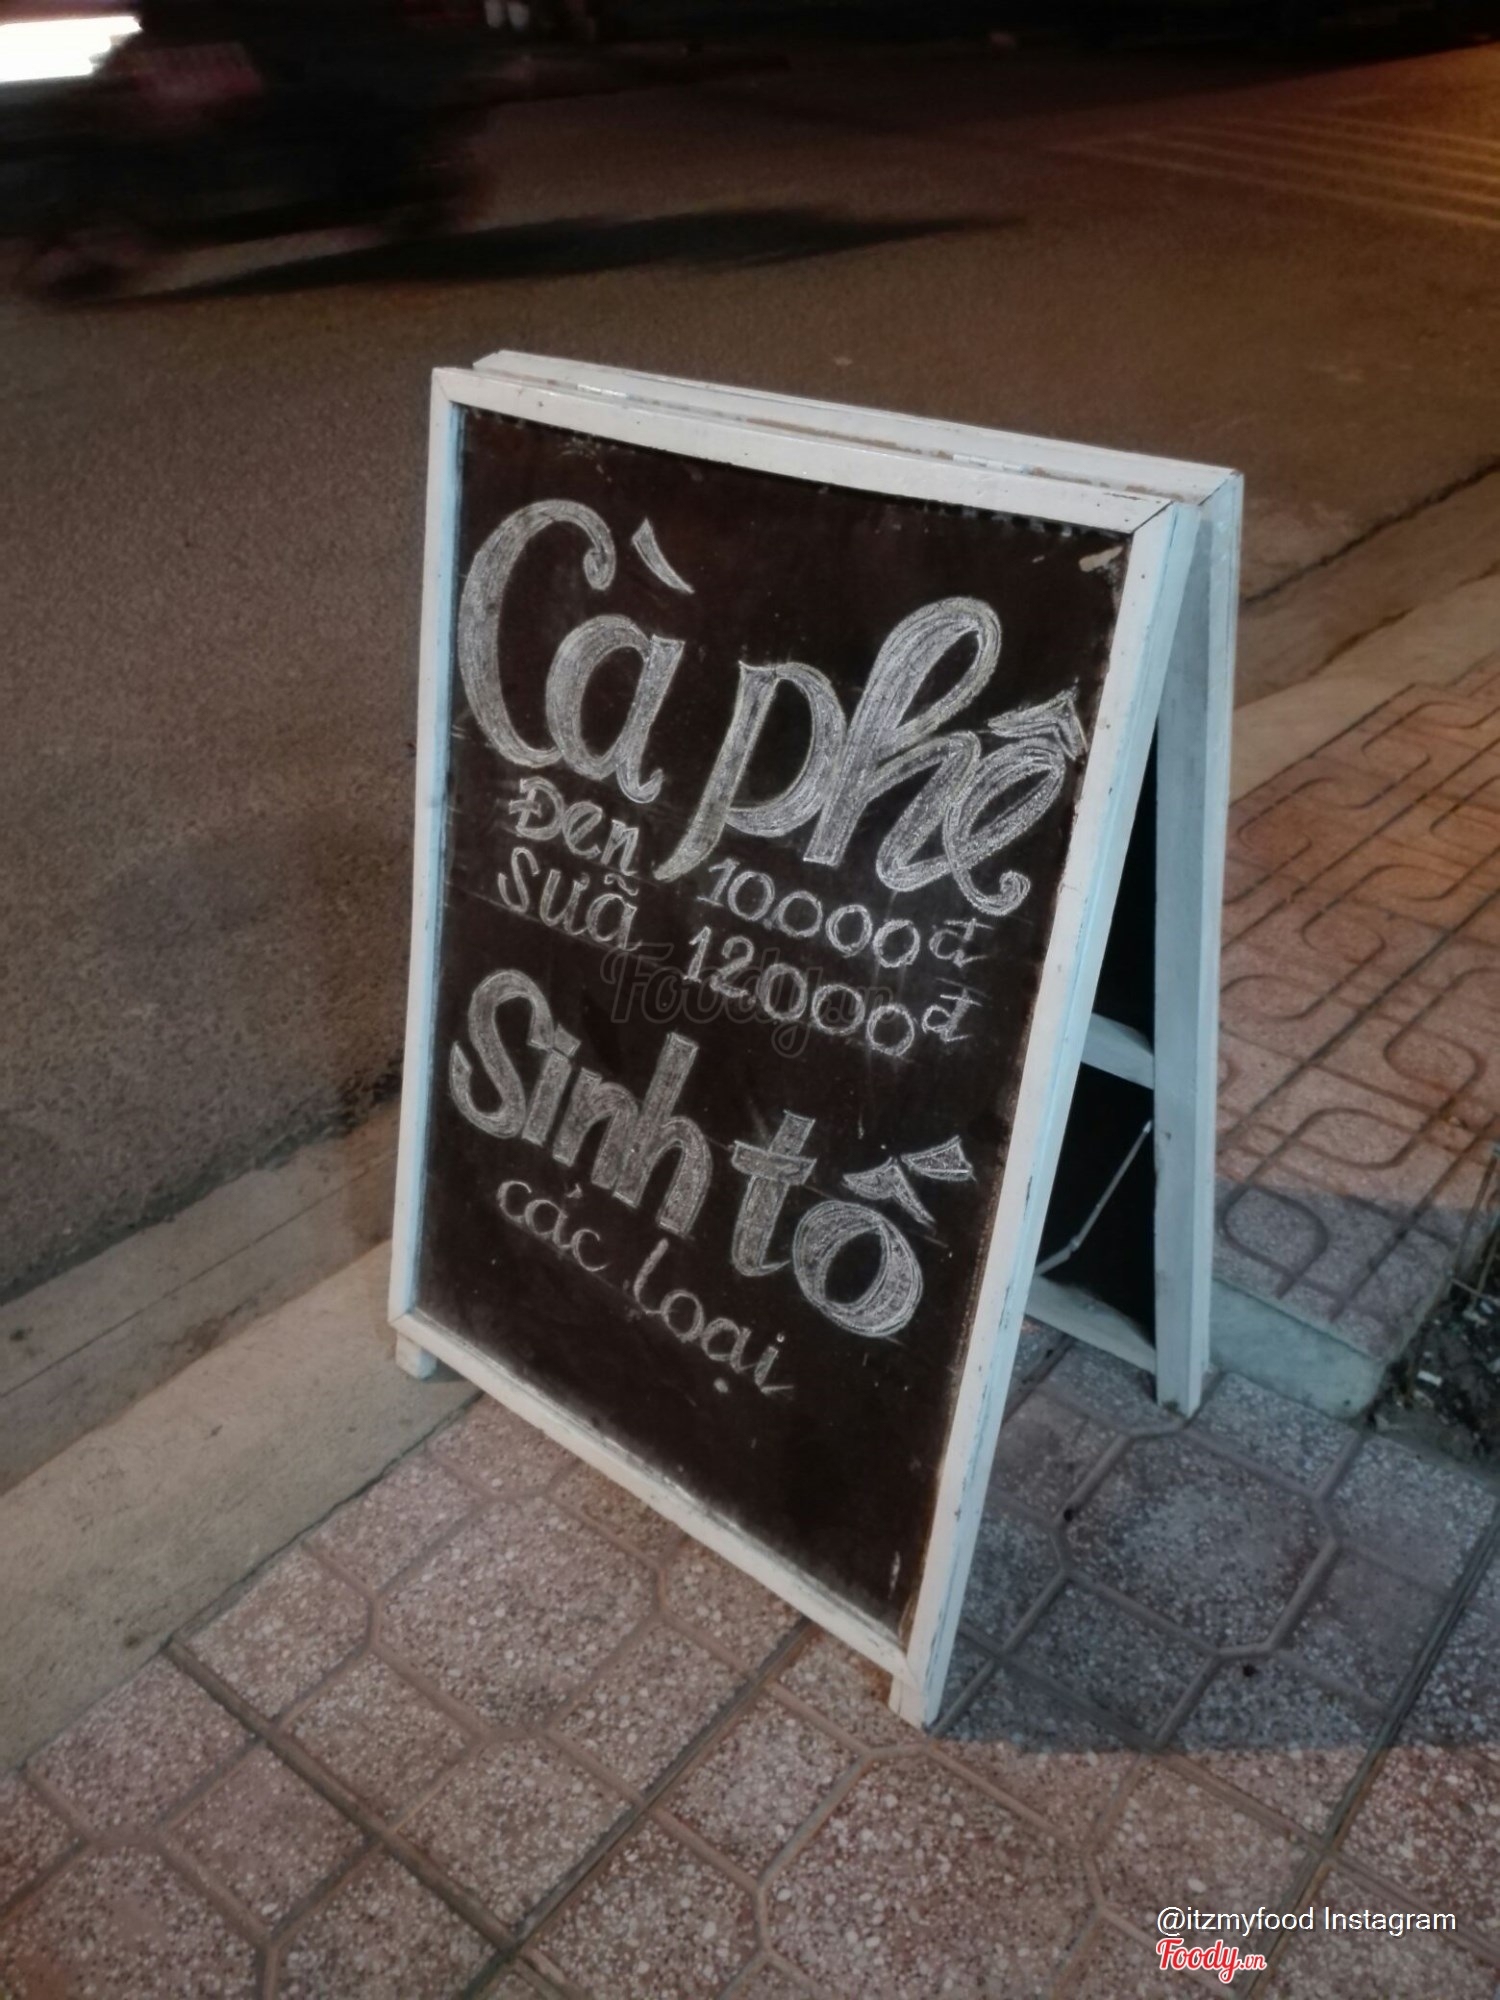 Cà phê
Đen 10.000đ
Sữa 12.000đ
Sinh tố
các loại
Foody.vn
@itzmyfood Instagram
Foody.vn